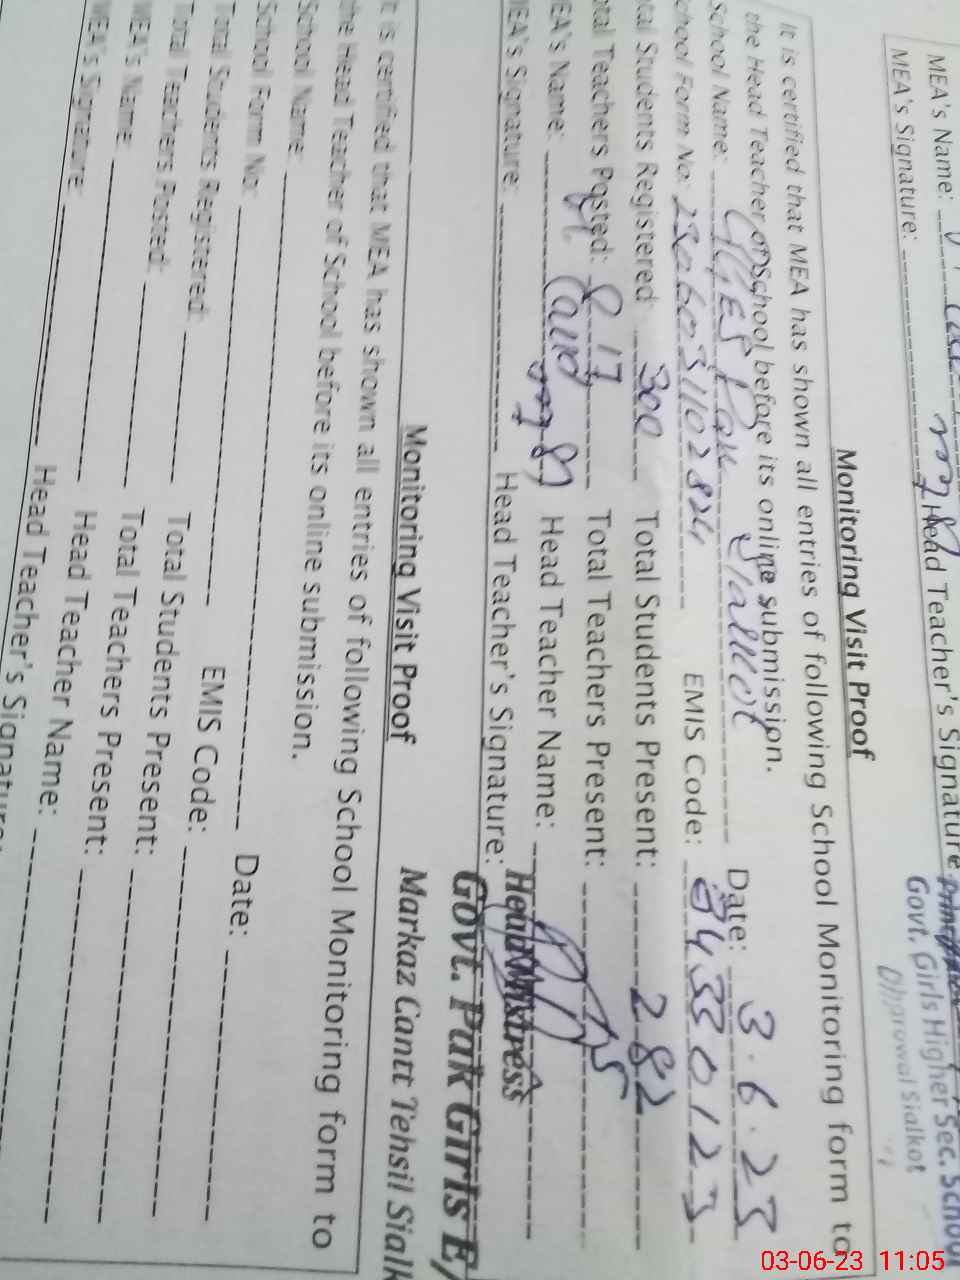 MEA's Name:
MEA's Signature: Head Teacher's Signature
Govt. Girls Higher Sec. School
Sialkot
Monitoring Visit Proof
It is certified that MEA has shown all entries of following School Monitoring form to
the Head Teacher of School before its online submission.
School Name: Sialkot Date: 3.6.23
School Form No: EMIS Code:
tal Students Registered: 300 Total Students Present: 282
tal Teachers Posted: 17 Total Teachers Present:
EA's Name: Head Teacher Name:
EA's Signature: Head Teacher's Signature:
Head Mistress
Govt. Pak Girls E/
Markaz Cantt Tehsil Sialk
Monitoring Visit Proof
t is certified that MEA has shown all entries of following School Monitoring form to
the Head Teacher of School before its online submission.
School Name: Date:
School Form No: EMIS Code:
Total Students Registered: Total Students Present:
Total Teachers Posted: Total Teachers Present:
MEA's Name: Head Teacher Name:
MEA's Signature: Head Teacher's Signature:
03-06-23 11:05